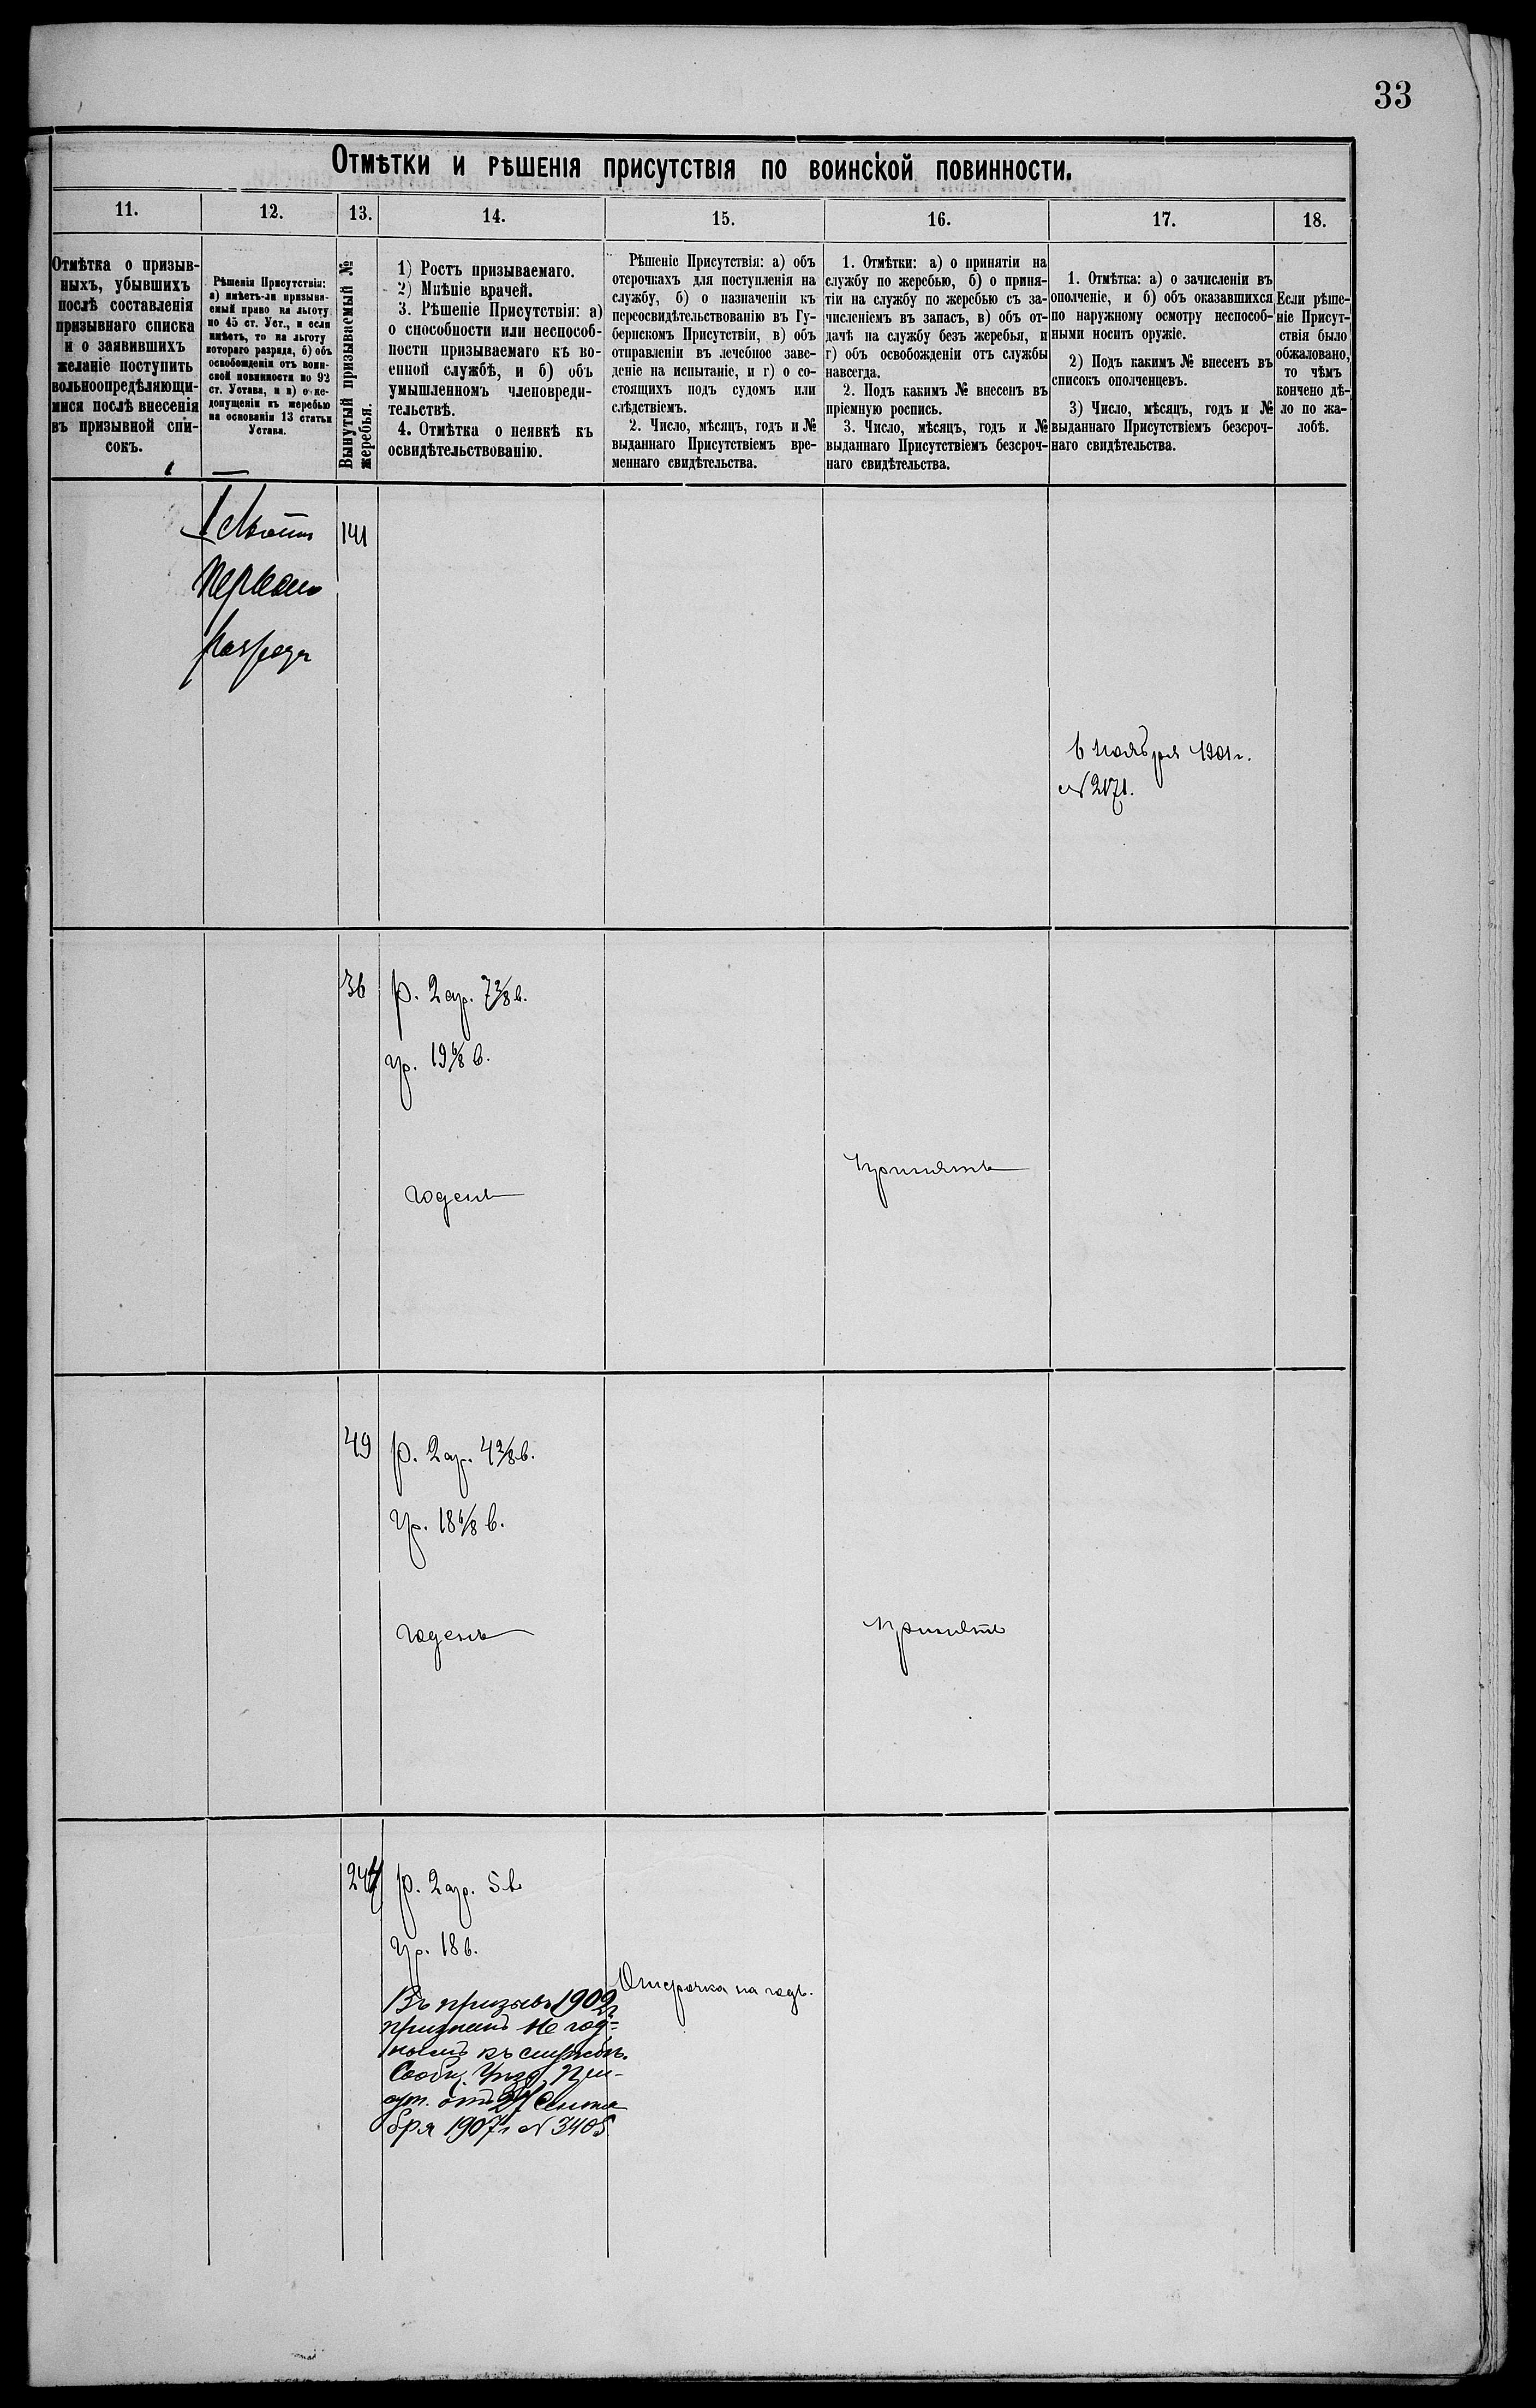 33
Отмѣтки и рѣшенія присутствія по воинской повинности.
11.
12.
13.
14.
15.
16.
17.
18.
Отмѣтка о призыв-
ныхъ, убывшихъ
послѣ составленія
призывнаго списка
и о заявившихъ
желаніе поступить
вольноопредѣляющи-
мися послѣ внесенія
въ призывной спи-
сокъ.
Рѣшенія Присутствія:
а) имѣетъ-ли призыва-
емый право на льготу
по 45 ст. Уст., и если
имѣетъ, то на льготу
котораго разряда, б) объ
освобожденіи отъ воин-
ской повинности по 92
ст. Устава, и в) о не-
допущеніи къ жеребью
на основаніи 13 статьи
Устава.
Вынутый призываемый №
жеребья.
1) Ростъ призываемаго.
2) Мнѣніе врачей.
3. Рѣшеніе Присутствія: а)
о способности или неспособ-
ности призываемаго къ во-
енной службѣ, и б) объ
умышленномъ членовреди-
тельствѣ.
4. Отмѣтка о неявкѣ къ
освидѣтельствованію.
Рѣшеніе Присутствія: а) объ
отсрочкахъ для поступленія на
службу, б) о назначеніи къ
переосвидѣтельствованію въ Гу-
бернскомъ Присутствіи, в) объ
отправленіи въ лечебное заве-
деніе на испытаніе, и г) о со-
стоящихъ подъ судомъ или
слѣдствіемъ.
2. Число, мѣсяцъ, годъ и №
выданнаго Присутствіемъ вре-
меннаго свидѣтельства.
1. Отмѣтки: а) о принятіи на
службу по жеребью, б) о приня-
тіи на службу по жеребью съ за-
численіемъ въ запасъ, в) объ от-
дачѣ на службу безъ жеребья, и
г) объ освобожденіи отъ службы
навсегда.
2. Подъ какимъ № внесенъ въ
пріемную роспись.
3. Число, мѣсяцъ, годъ и №
выданнаго Присутствіемъ безсроч-
наго свидѣтельства.
1. Отмѣтка: а) о зачисленіи въ
ополченіе, и б) объ оказавшихся
по наружному осмотру неспособ-
ными носить оружіе.
2) Подъ какимъ № внесенъ въ
списокъ ополченцевъ.
3) Число, мѣсяцъ, годъ и №
выданнаго Присутствіемъ безсроч-
наго свидѣтельства.
Если рѣше-
ніе Присут-
ствія было
обжаловано,
то чѣмъ
кончено дѣ-
ло по жа-
лобѣ.
I Льготы
перваго
разряда
141
6 ноября 1901 г.
№ 2171.
36
р. 2 ар. 7 2/8 в.
гр. 19 6/8 в.
годенъ
принять
49
р. 2 ар. 4 2/8 в.
гр. 18 6/8 в.
годенъ
принять
244
р. 2 ар. 5 в
гр. 18 в.
Отсрочка на годъ.
Въ призывъ 1902 г
признанъ не год-
нымъ къ службѣ.
Сообщ. Уѣзд.
отъ 27 Сентя
бря 1907 г № 3405